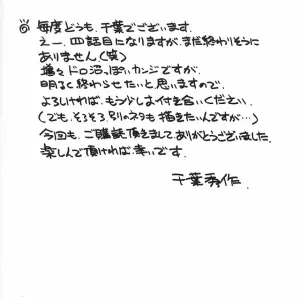 毎度どうも、千葉でございます。
えー、四話目になりますが、まだ終わりそうに
ありません。(笑)
増々ドロ沼っぽいカンジですが、
明るく終わらせたいと思いますので、
よろしければ、もう少しお付き合いください。
(でも、そろそろ別のネタも描きたいんですが…)
今回も、ご購読頂きまして、ありがとうございました。
楽しんで頂ければ、幸いです。
千葉秀作